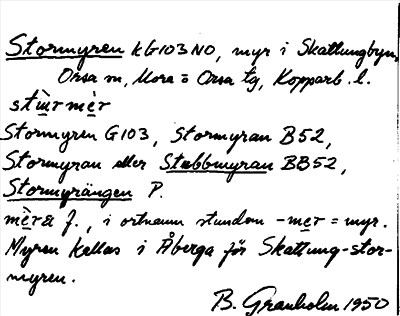 Stormyren KG103NO, myr i Skattungbyn,
Orsa sn, Mora o Orsa tg, Kopparb. l.
stùrmèr
Stormyren G103, Stormyran B52,
Stormyran eller Stubbmyran BB52,
Stormyrängen P.
mèra f., i ortnamn stundom -mer = myr.
Myren kallas i Åberga för Skattung-stor-
myren.
B. Granholm 1950